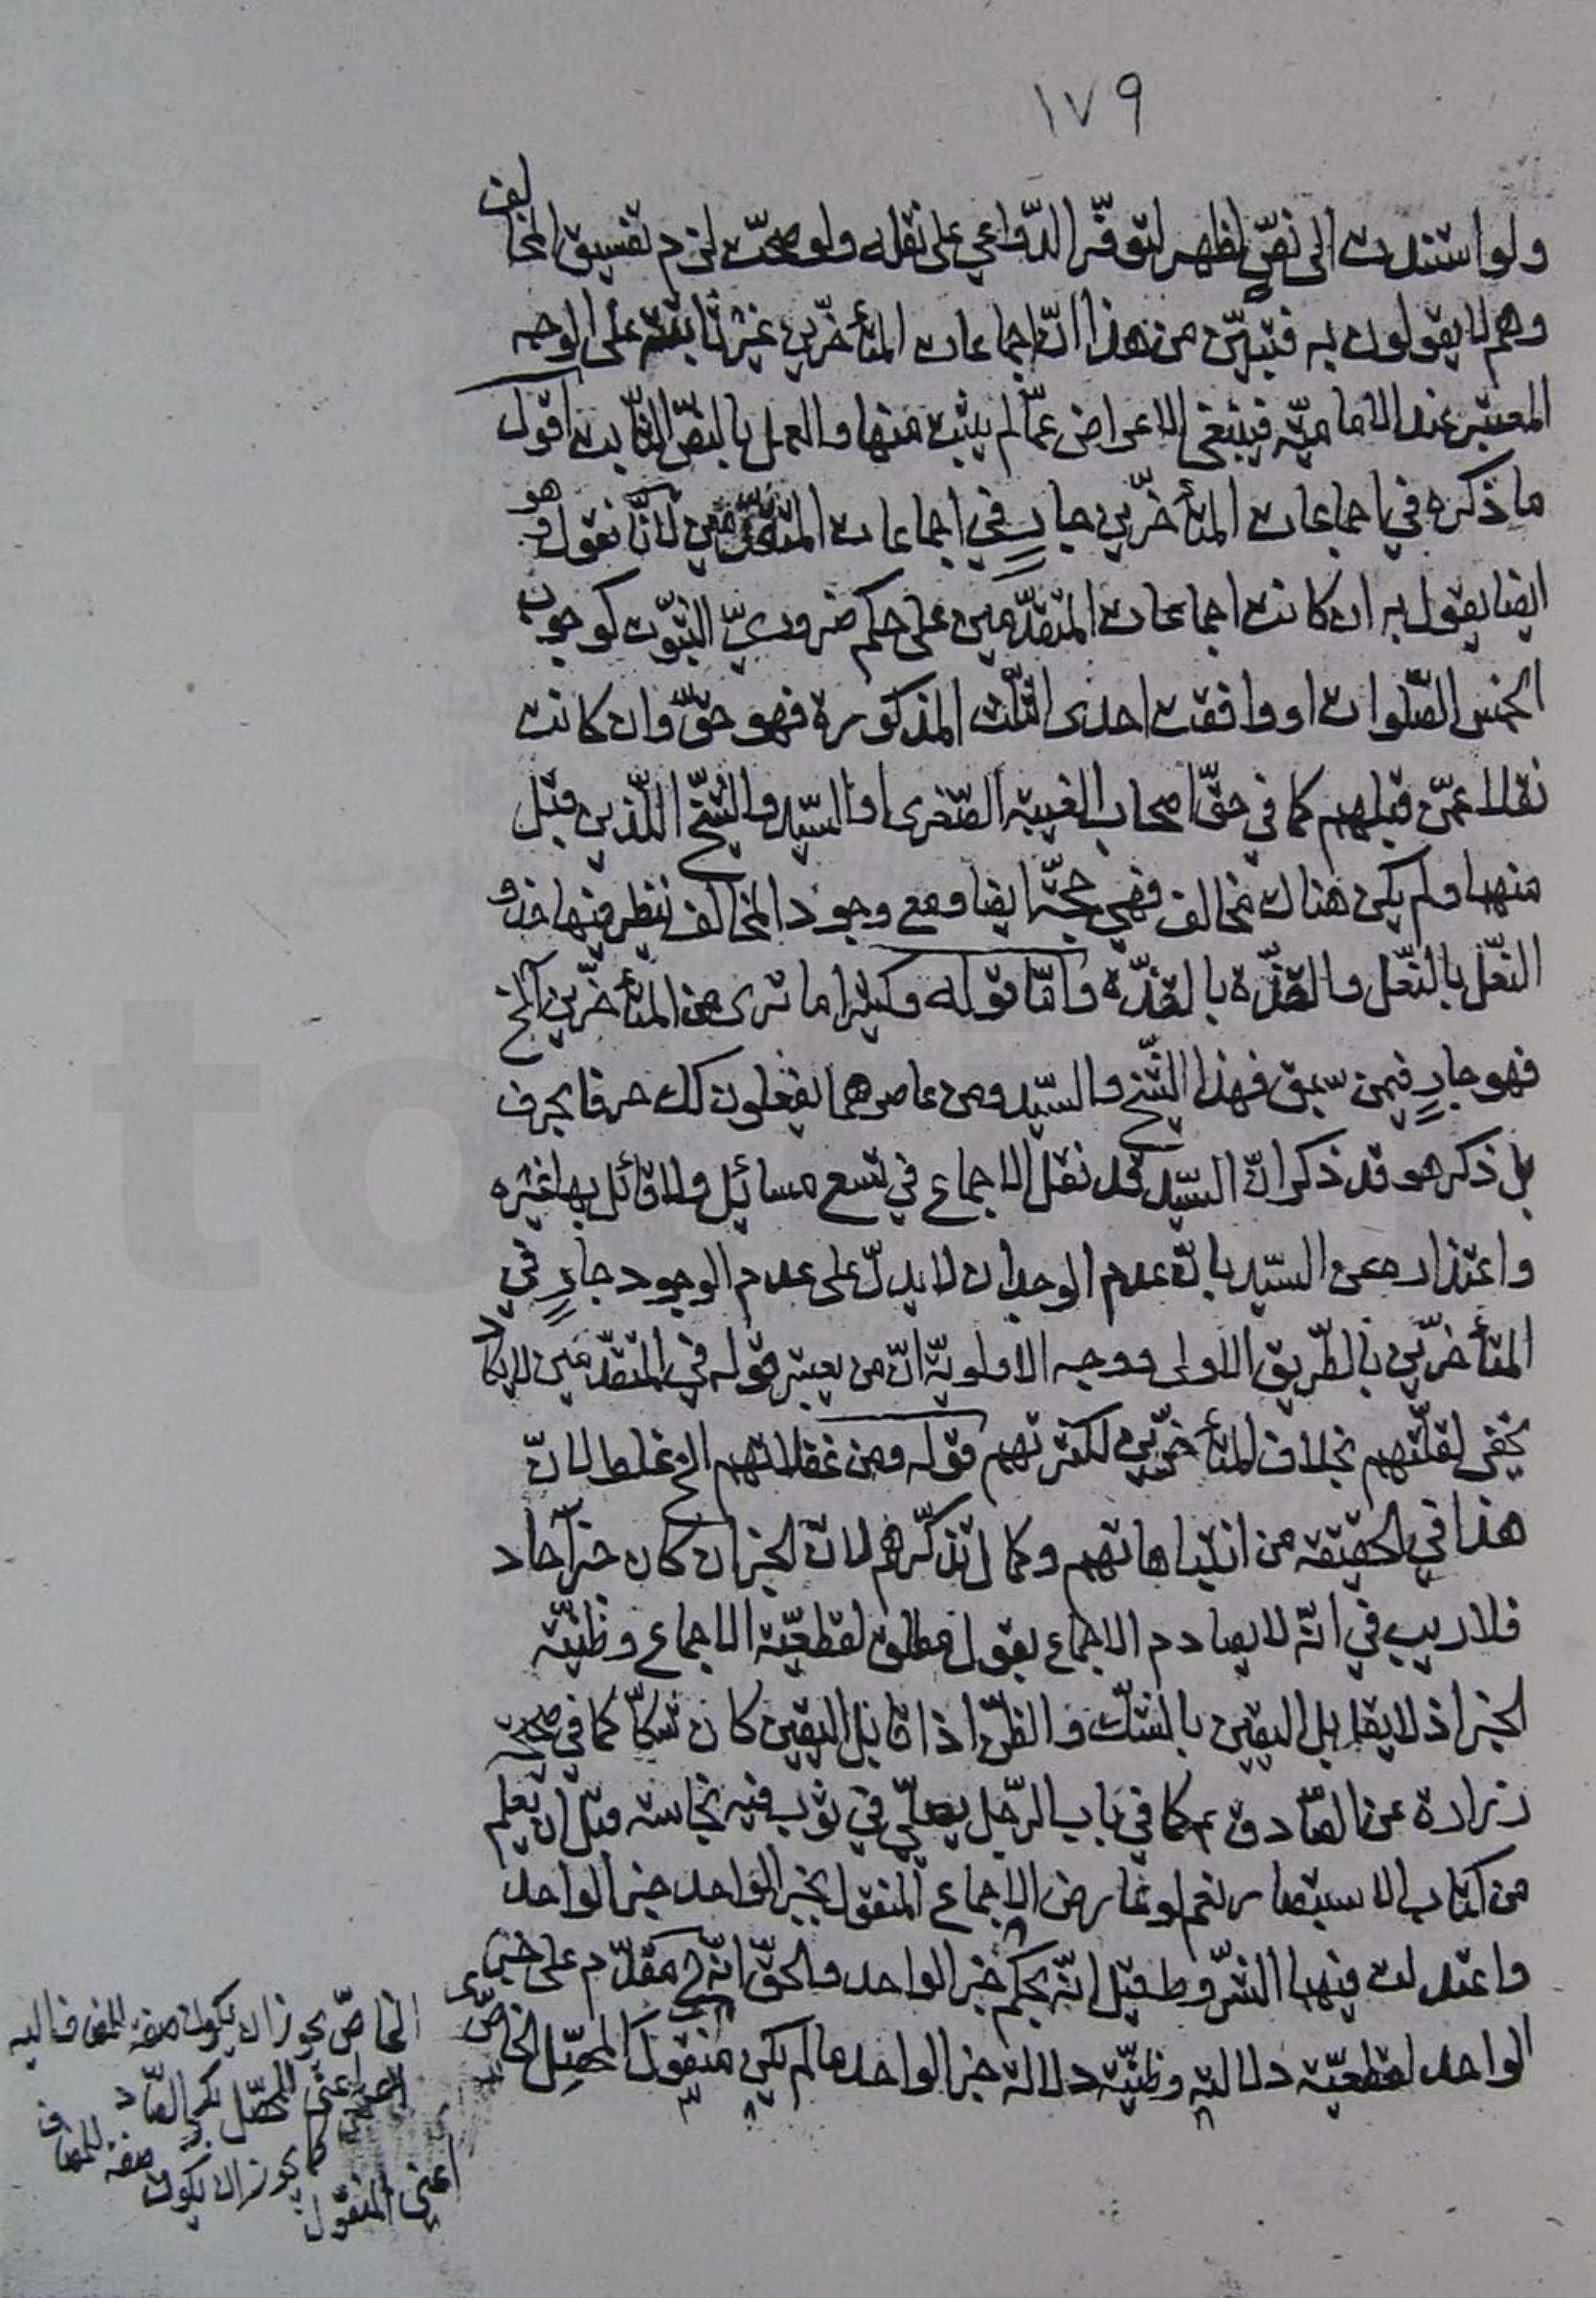 ١٧٩
ولو استندت الى نصّ لظهر لتوفّر الدّواعي على نقله ولو صحّت لزم تفسيق المخالف
وهم لا يقولون به فتبيّن من هذا انّ اجماعات المتأخّرين غير ثابتة على الوجه
المعتبر عند الاماميّة فينبغي الاعراض عمّا لم يثبت منها والعمل بالنصّ الثّابت اقول
ما ذكره في اجماعات المتأخّرين جارٍ في اجماعات المتقدّمين لانّا نقول وهو
ايضا يقول به ان كانت اجماعات المتقدّمين على حكم ضروريّ الثبوت كوجوب
الخمس الصّلوات او وافقت احدى الثّلث المذكورة فهو حقّ وان كانت
نقلا عمّن قبلهم كما في حقّ اصحاب الغيبة الصّغرى او السّيد والشّيخ اللّذين قبل
منهما ولم يكن هناك مخالف فهي حجّة ايضا ومع وجود المخالف ننظر فيها حذو
النّعل بالنّعل والقذّة بالقذّة وامّا قوله وكثيرا ما ترى من المتأخّرين الخ
فهو جارٍ فيمن سبق فهذا الشّيخ والسّيد ومن عاصرهما يفعلون كك حرفا بحرف
بل ذكر هو قد ذكر انّ السّيد قد نقل الاجماع في تسع مسائل ولا قائل بها غيره
واعتذاره عن السّيد بانّ عدم الوجدان لا يدلّ على عدم الوجود جارٍ في
المتأخّرين بالطّريق الاولى ووجه الاولويّة انّ من يعتبر قوله في المتقدّمين لا يكاد
يخفى لقلّتهم بخلاف المتأخّرين لكثرتهم قوله ومن غفلاتهم الخ غلط لانّ
هذا في الحقيقة من انتباهاتهم وكمال تذكّرهم لانّ الخبر ان كان خبر آحاد
فلا ريب في انّه لا يصادم الاجماع بقول مطلق لقطعيّة الاجماع وظنّيّة
الخبر اذ لا يقابل اليقين بالشّك والظّن اذا قابل اليقين كان شكّا كما في صحيحة
زرارة عن الصّادق ع كما في باب الرّجل يصلّي في ثوب فيه نجاسة قبل ان يعلم
من كتاب الاستبصار نعم لو عارض الاجماع المنقول بخبر الواحد خبر الواحد
واعتدلت فيهما الشّروط فقيل انّه بحكم خبر الواحد والحقّ انّه ح مقدّم على خبر
الواحد لقطعيّة دلالته وظنّيّة دلالة خبر الواحد ما لم يكن منقول المحصّل الخاصّ
الخاصّ يجوز ان يكون صفة للمضاف اليه
اعني المحصّل بكسر الصّاد
كما يجوز ان يكون صفة للمضاف
اعني المنقول